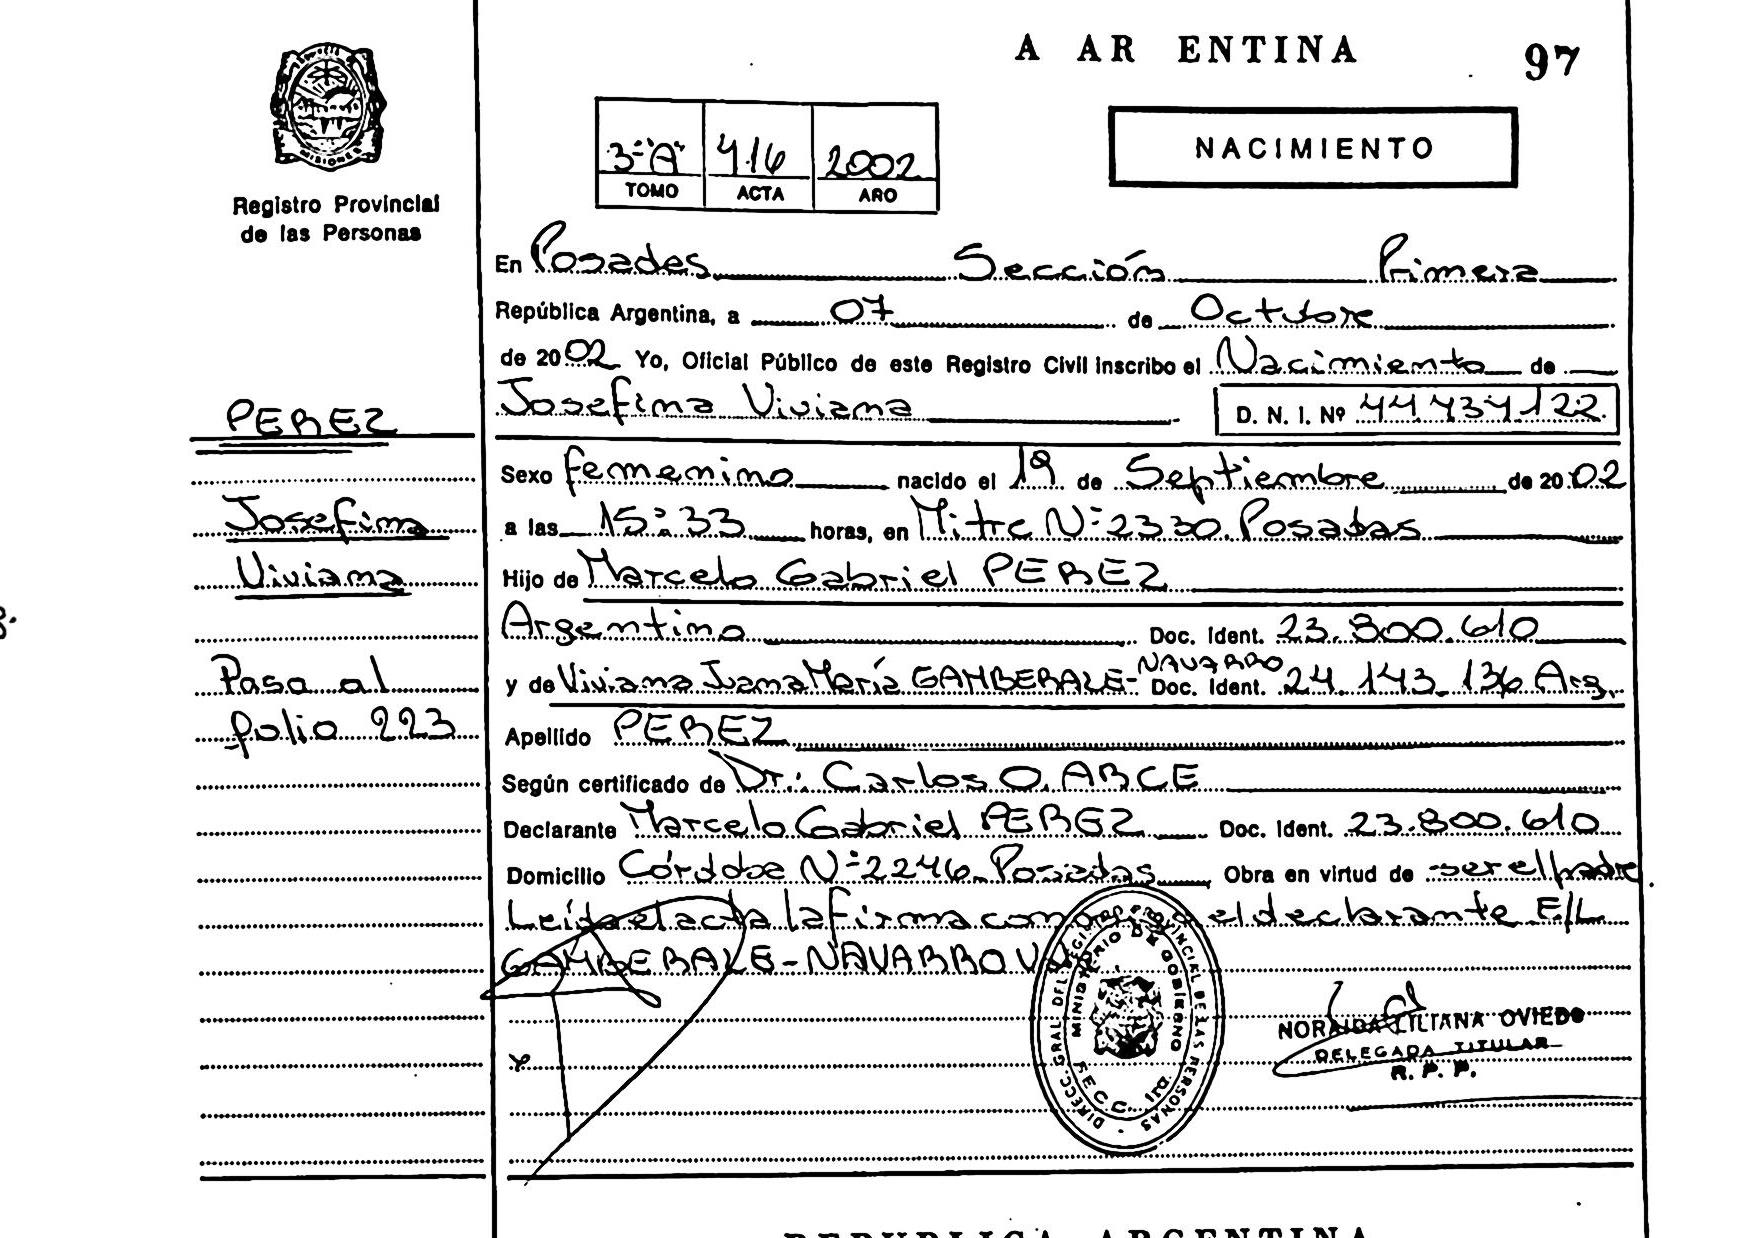 A AR ENTINA 97
MISIONES
Registro Provincial
de las Personas
3-"A" 416 2002
TOMO ACTA ARO
NACIMIENTO
En Posadas Sección Primera
República Argentina, a 07 de Octubre
de 2002 Yo, Oficial Público de este Registro Civil inscribo el Nacimiento de
Josefina Viviana D. N. I. Nº 44.434.122.
Sexo femenino nacido el 19 de Septiembre de 2002
a las 15:33 horas, en Mitre Nº 2330. Posadas
Hijo de Marcelo Gabriel PEREZ
Argentino Doc. Ident. 23.800.610
NAVARRO
y de Viviana Juana María GAMBERALE- Doc. Ident. 24.143.136 Arg.
Apellido PEREZ
Según certificado de Dr.: Carlos O. ARCE
Declarante Marcelo Gabriel PEREZ Doc. Ident. 23.800.610
Domicilio Córdoba Nº 2246. Posadas Obra en virtud de ser el padre
Leída el acta la firma con el declarante E/L
GAMBERALE-NAVARRO
PEREZ
Josefina
Viviana
Pasa al
folio 223
DIRECC. GRAL. DEL REGISTRO PROVINCIAL DE LAS PERSONAS
MINISTERIO DE GOBIERNO
SECC. 1ra.
NORAIDA LILIANA OVIEDO
DELEGADA TITULAR
R. P. P.
REPUBLICA ARGENTINA